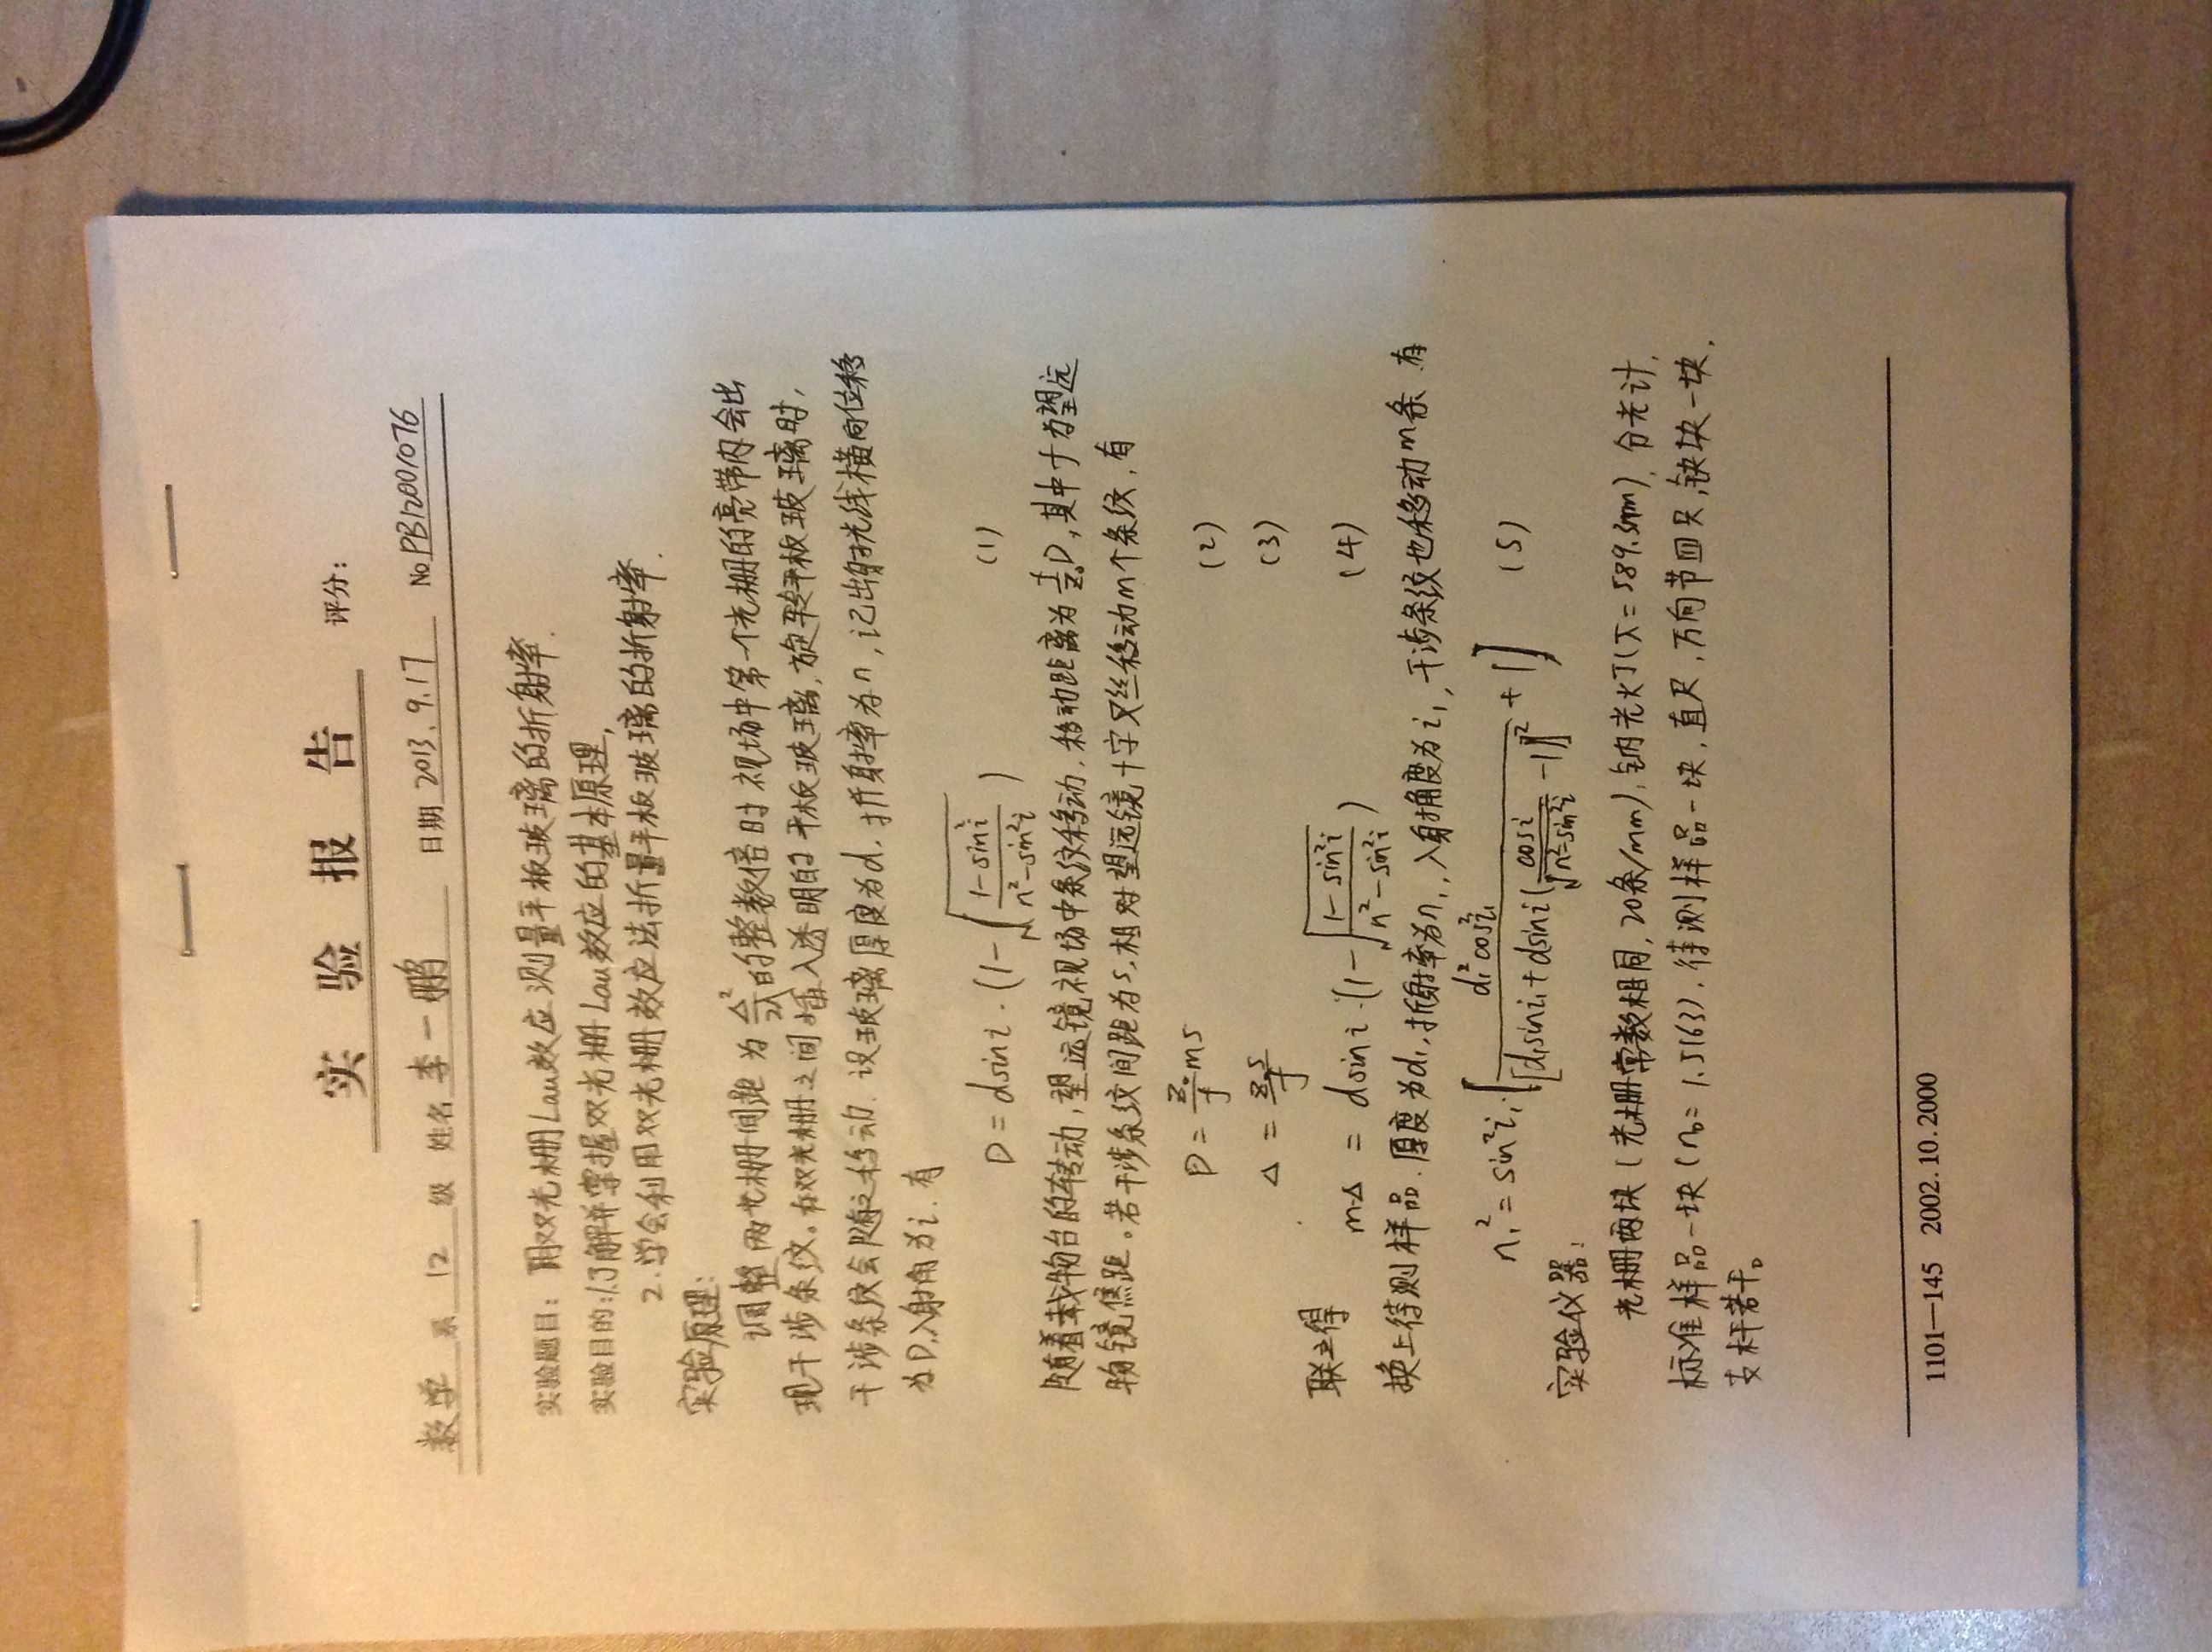 实 验 报 告 评分:
数学 系 12 级 姓名 李一鹏 日期 2013.9.17 No PB12001076
实验题目: 用双光栅Lau效应测量平板玻璃的折射率.
实验目的:1.了解并掌握双光栅Lau效应的基本原理,
2.学会利用双光栅效应法折量平板玻璃的折射率.
实验原理:
调整两光栅间距为Δ²/2λ的整数倍时视场中第一个光栅的亮带内会出
现干涉条纹。在双光栅之间插入透明的平板玻璃,旋转平板玻璃时,
干涉条纹会随之移动.设玻璃厚度为d,折射率为n,记出射光线横向位移
为D,入射角为i.有
D = dsini·(1-√((1-sin²i)/(n²-sin²i))) (1)
随着载物台的转动,望远镜视场中条纹移动,移动距离为f/z₀D,其中f为望远
物镜焦距。若干涉条纹间距为s,相对望远镜十字叉丝移动m个条纹,有
D = z₀/f ms (2)
Δ = z₀s/f (3)
联立得
m·Δ = dsini·(1-√((1-sin²i)/(n²-sin²i))) (4)
换上待测样品.厚度为d₁,折射率为n₁,入射角度为i₁,干涉条纹也移动m条.有
n₁² = sin²i₁·[d₁²cos²i₁/[d₁sini₁+dsini(cosi/√(n²-sin²i) -1)]² +1] (5)
实验仪器:
光栅两块(光栅常数相同,20条/mm),钠光灯(λ=589.3nm),分光计,
标准样品一块(n₀=1.5163),待测样品一块,直尺,万向节四只,铁块一块,
支杆若干。
1101—145 2002.10.2000